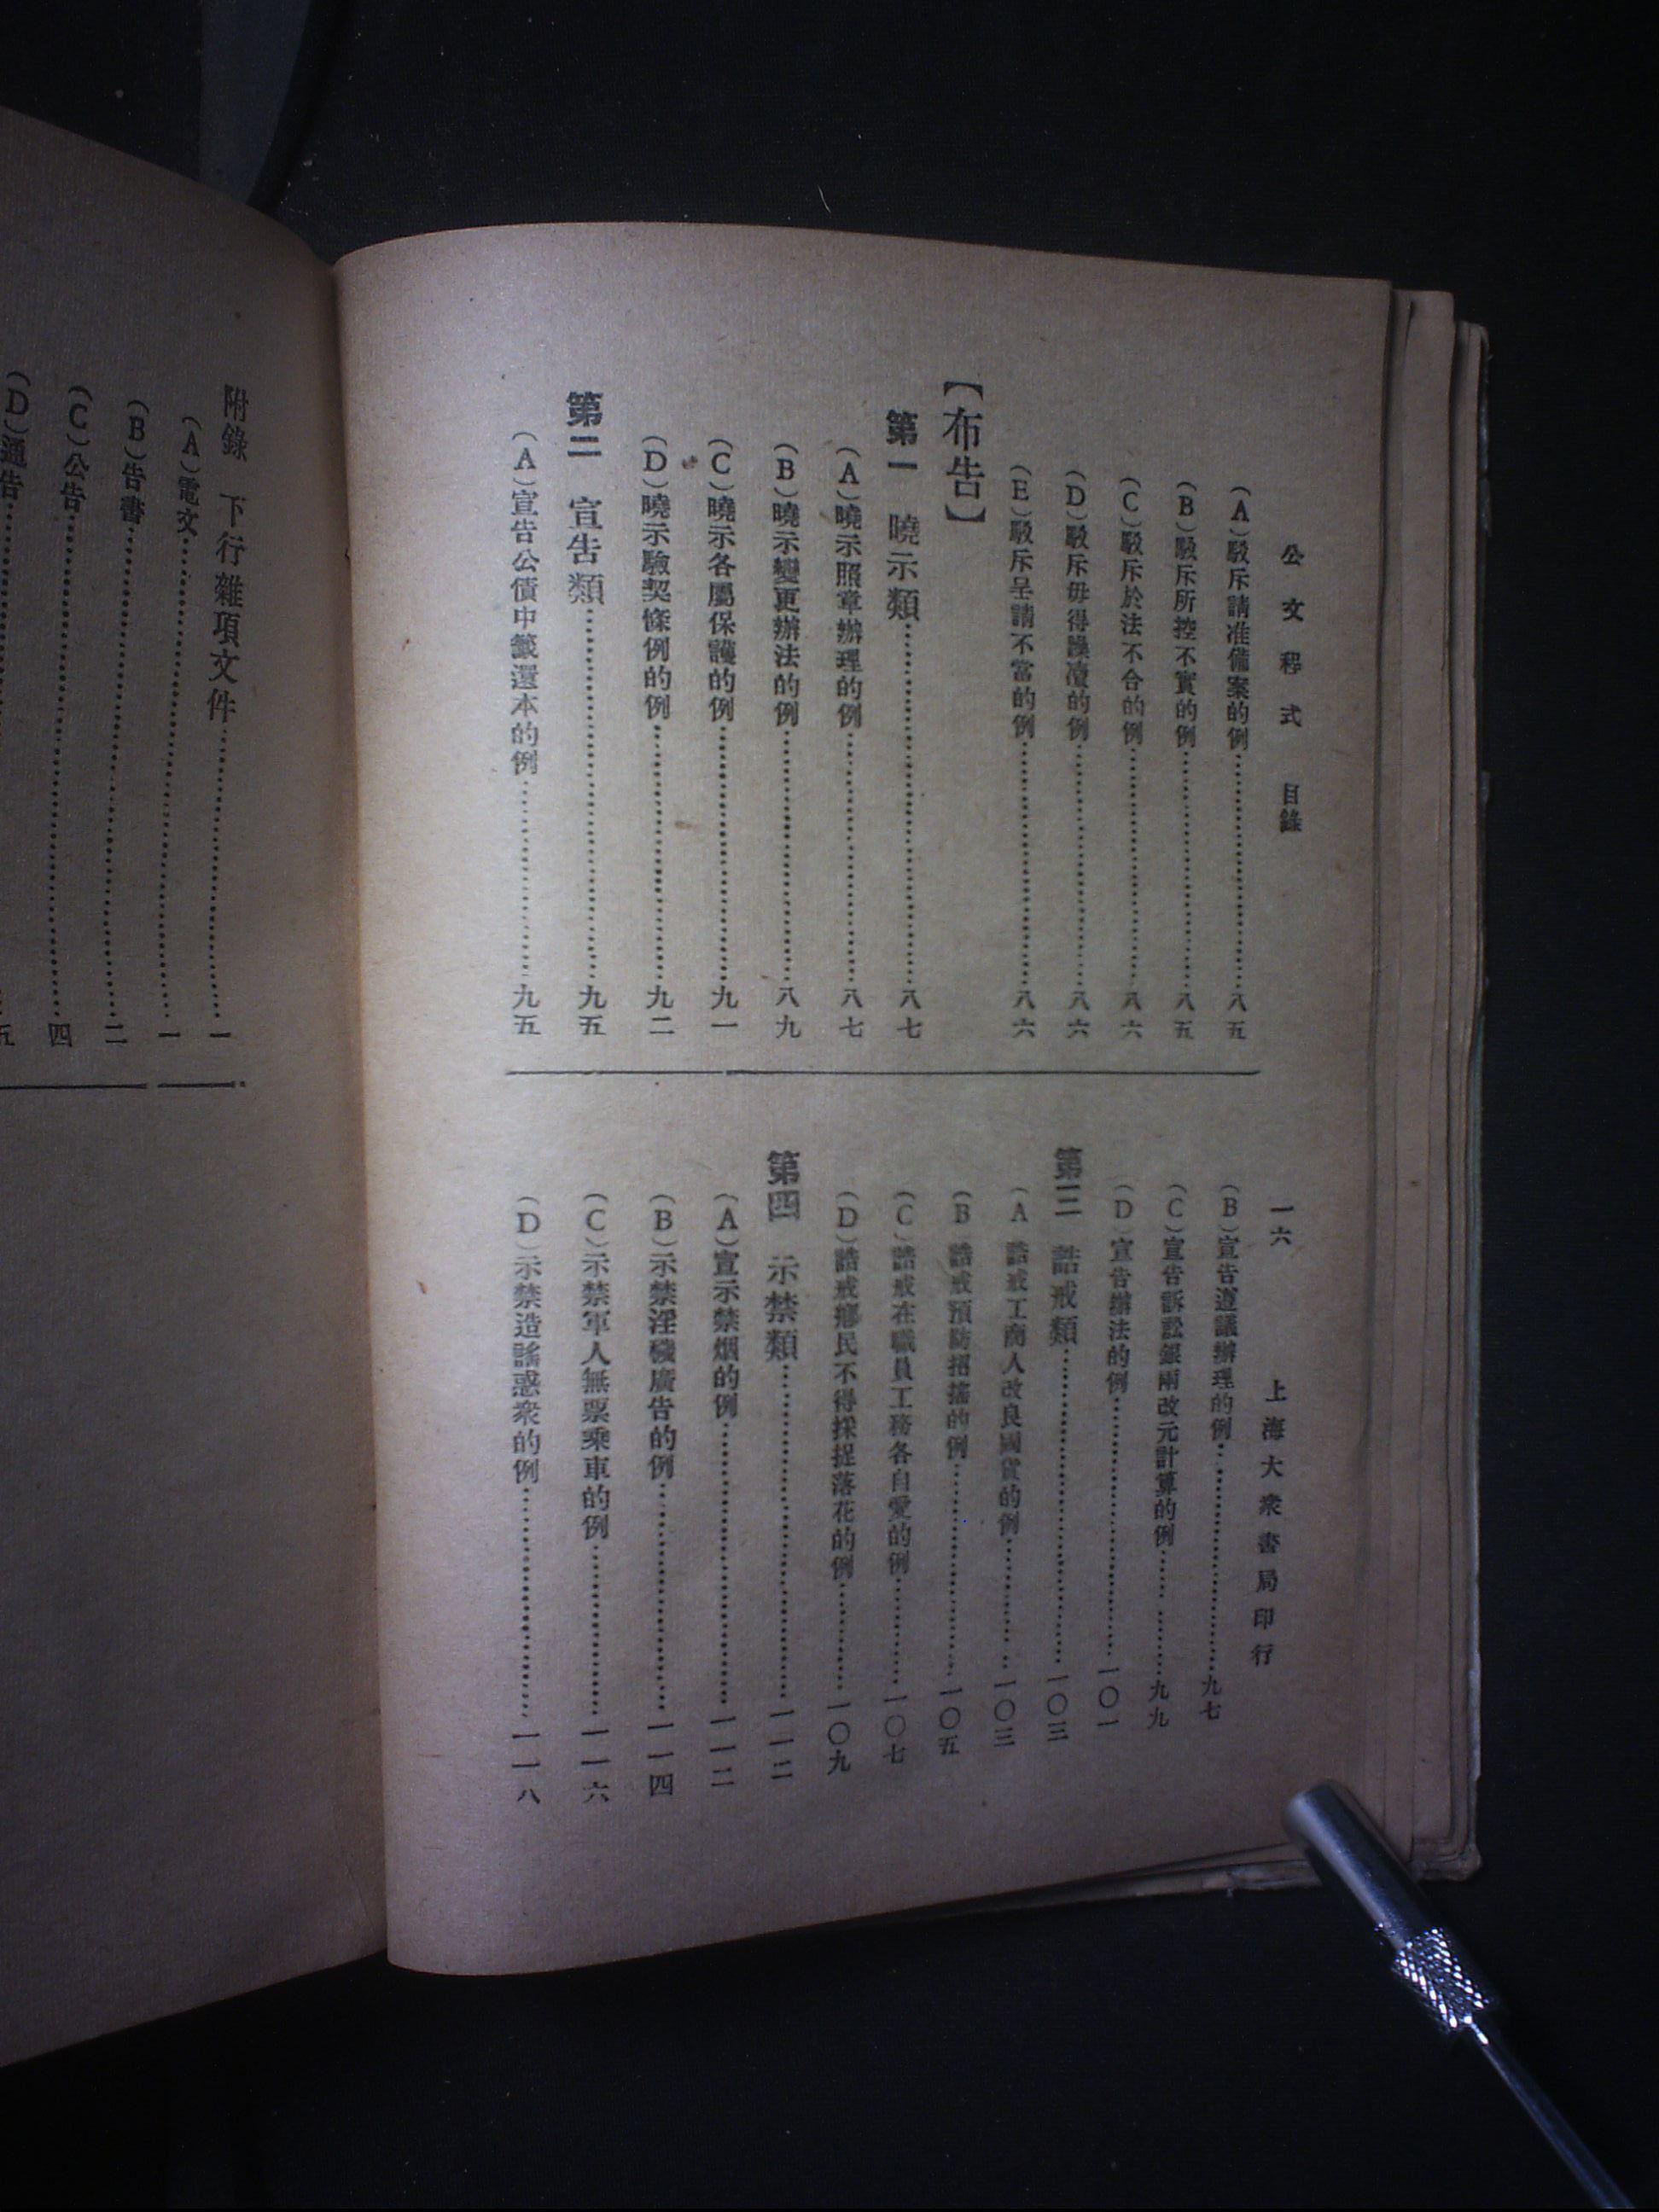 公文程式 目錄 一六 上海大衆書局印行
（A）駁斥請准備案的例…………八五
（B）駁斥所控不實的例…………八五
（C）駁斥於法不合的例…………八六
（D）駁斥毋得瀆的例…………八六
（E）駁斥呈請不當的例…………八六
【布告】
第一 曉示類…………八七
（A）曉示照章辦理的例…………八七
（B）曉示變更辦法的例…………八九
（C）曉示各屬保護的例…………九一
（D）曉示驗契條例的例…………九二
第二 宣告類…………九五
（A）宣告公債中籤還本的例…………九五
（B）宣告遵議辦理的例…………九七
（C）宣告訴訟銀兩改元計算的例…………九九
（D）宣告辦法的例…………一〇一
第三 誥戒類…………一〇三
（A）誥戒工商人改良國貨的例…………一〇三
（B）誥戒預防招搖的例…………一〇五
（C）誥戒在職員工務各自愛的例…………一〇七
（D）誥戒鄉民不得採捉落花的例…………一〇九
第四 示禁類…………一一二
（A）宣示禁烟的例…………一一二
（B）示禁淫穢廣告的例…………一一四
（C）示禁軍人無票乘車的例…………一一六
（D）示禁造謠惑衆的例…………一一八
附錄 下行雜項文件…………一
（A）電文…………一
（B）告書…………二
（C）公告…………四
（D）通告…………五